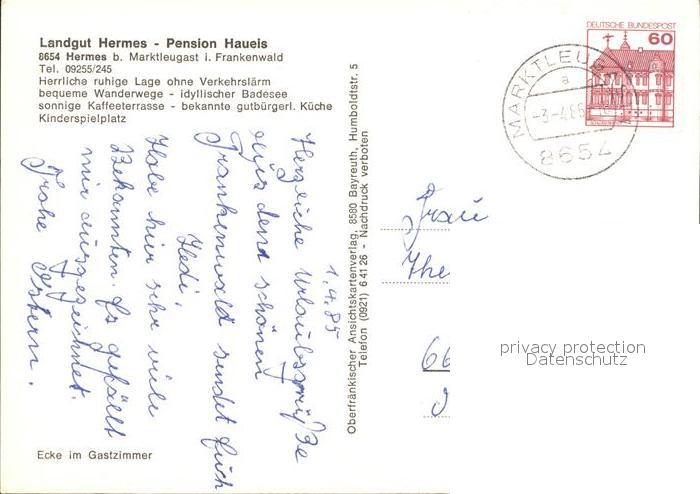 Landgut Hermes - Pension Haueis
8654 Hermes b. Marktleugast i. Frankenwald
Tel. 09255/245
Herrliche ruhige Lage ohne Verkehrslärm
bequeme Wanderwege - idyllischer Badesee
sonnige Kaffeeterrasse - bekannte gutbürgerl. Küche
Kinderspielplatz
1.4.85
Herzliche Urlaubsgrüße
aus dem schönen
Frankenwald sendet Euch
Hedi.
Habe hier sehr viele
Bekannten. Es gefällt
mir ausgezeichnet.
Frohe Ostern.
Ecke im Gastzimmer
Oberfränkischer Ansichtskartenverlag, 8580 Bayreuth, Humboldtstr. 5
Telefon (0921) 6 41 26 - Nachdruck verboten
DEUTSCHE BUNDESPOST
60
MARKTLEUG
a
8654
Frau
The
66
privacy protection
Datenschutz